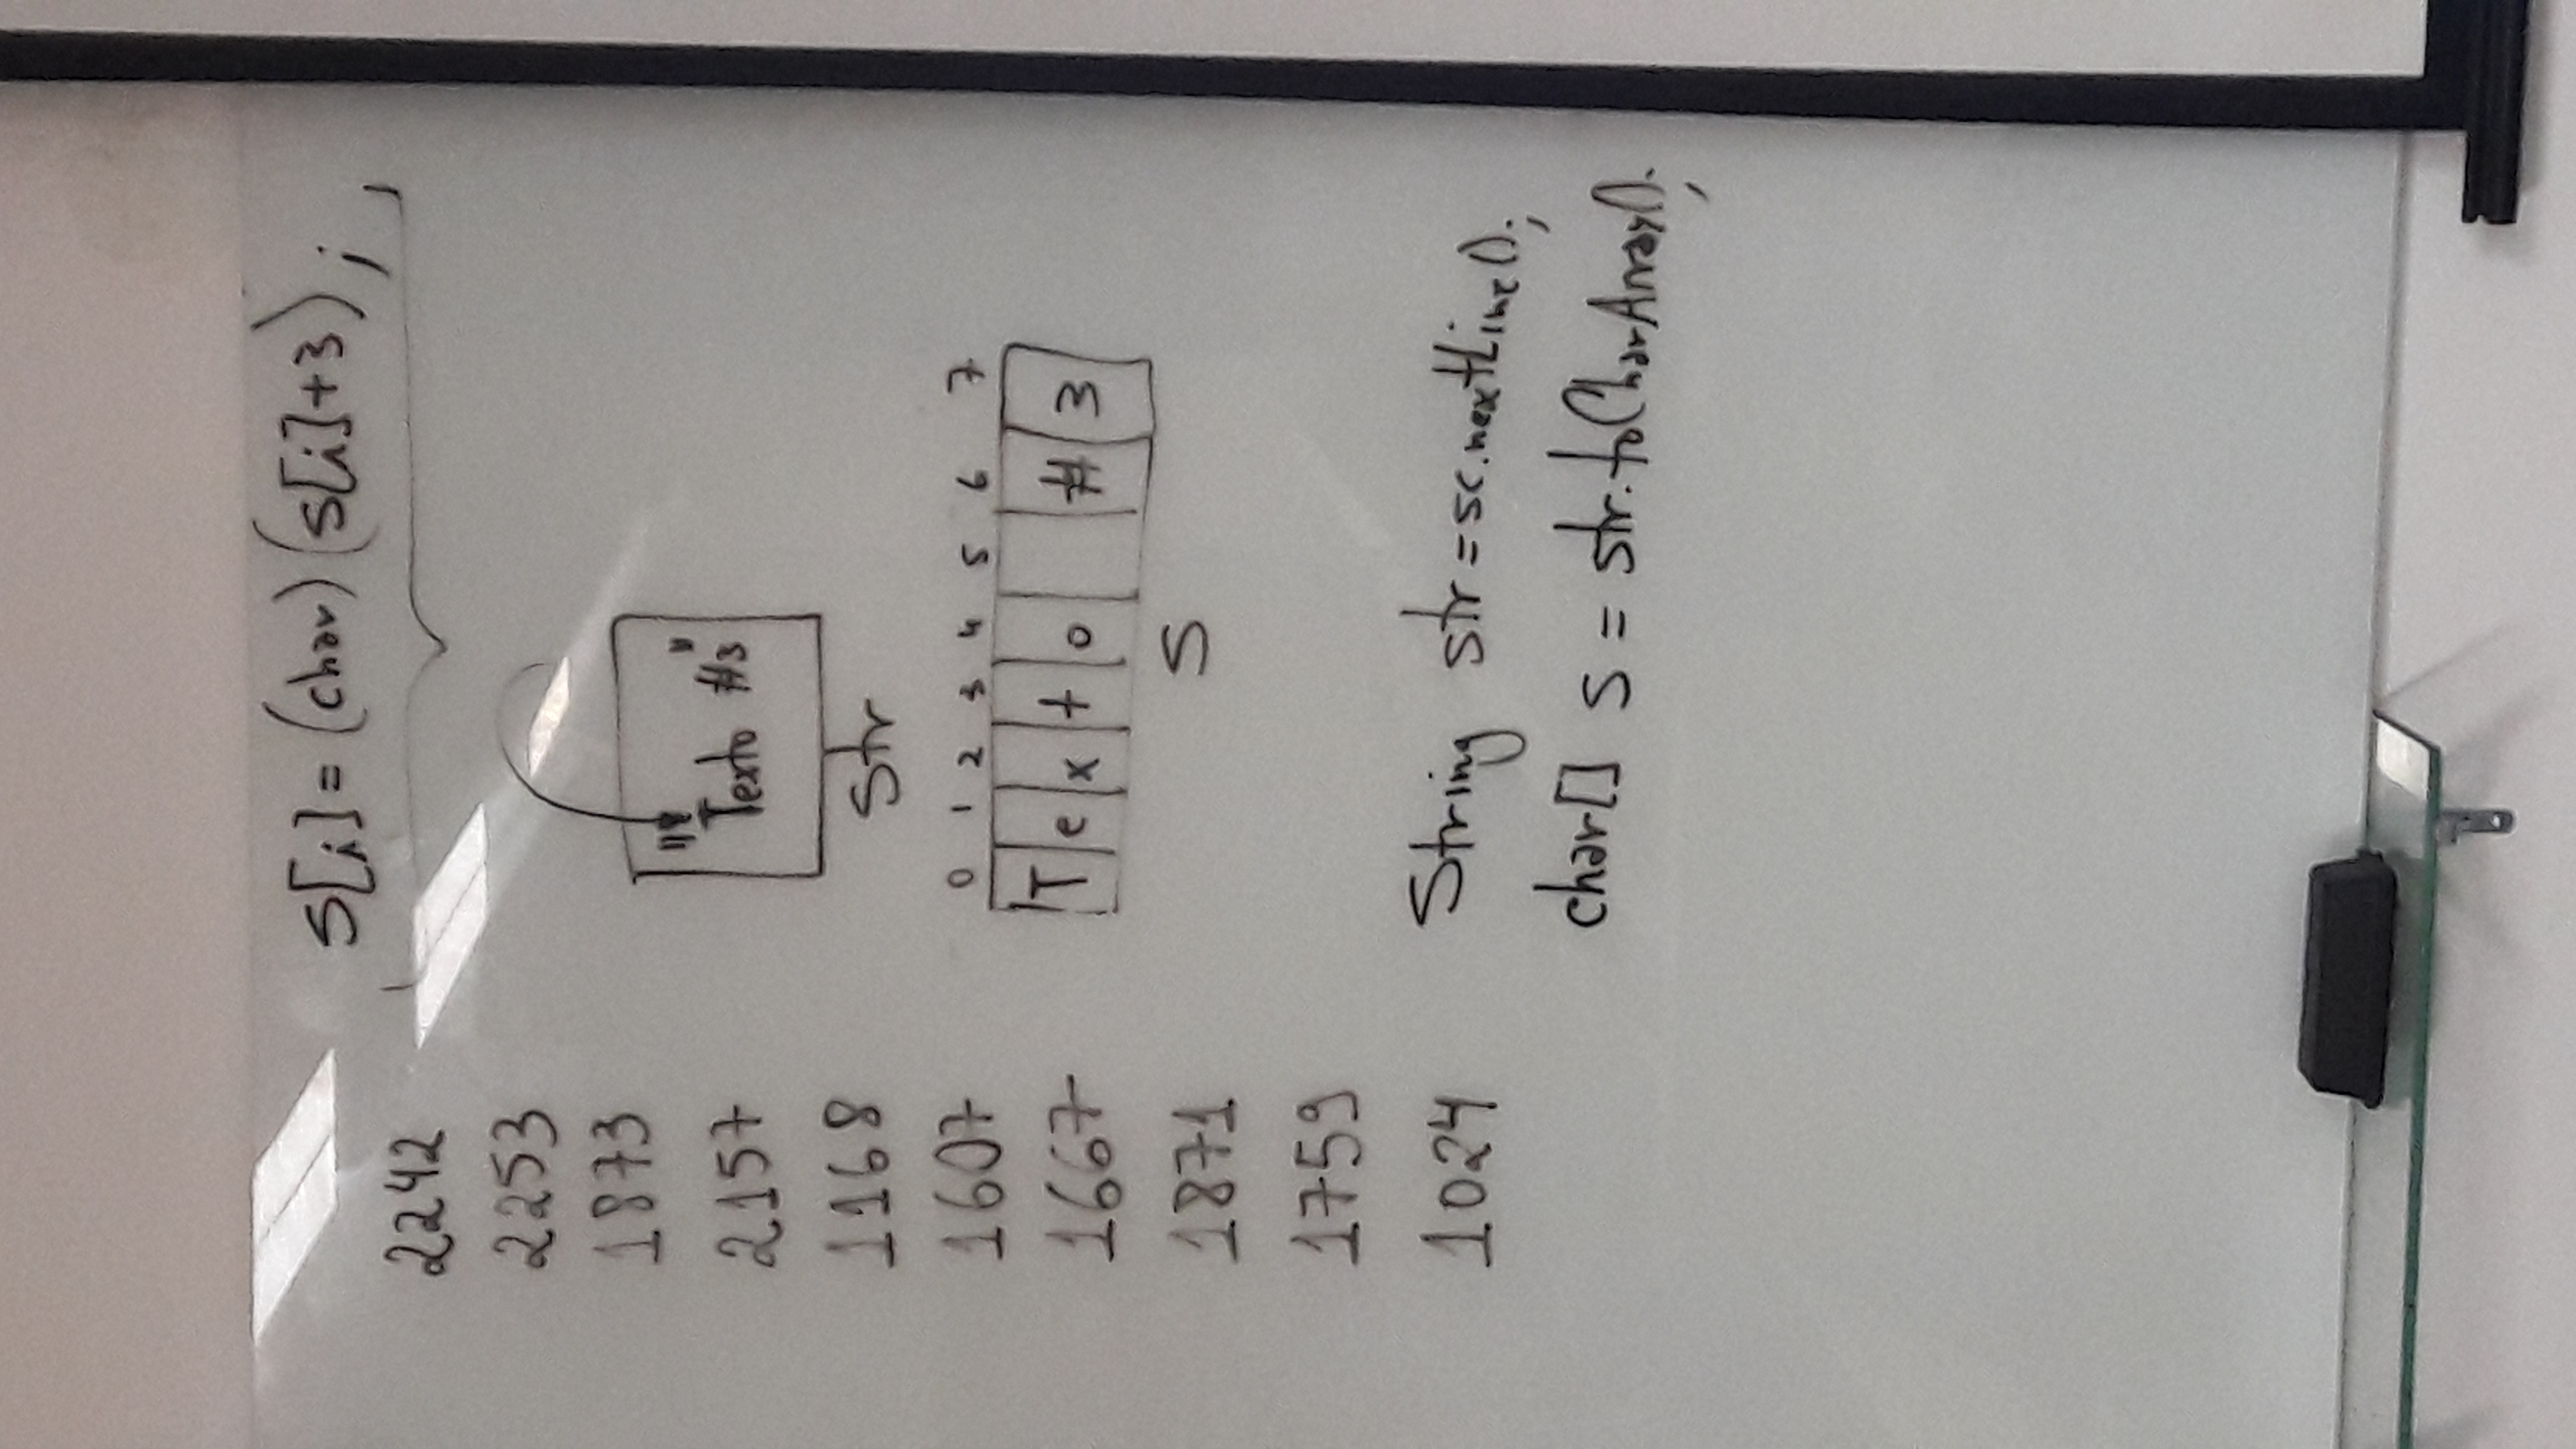 s[i] = (char) (s[i]+3);
2242
2253
1873
2157
1168
1607
1667
1871
1759
1024
"Texto #3"
str
0 1 2 3 4 5 6 7
T e x t o # 3
S
String str = sc.nextLine();
char[] s = str.toCharArray();